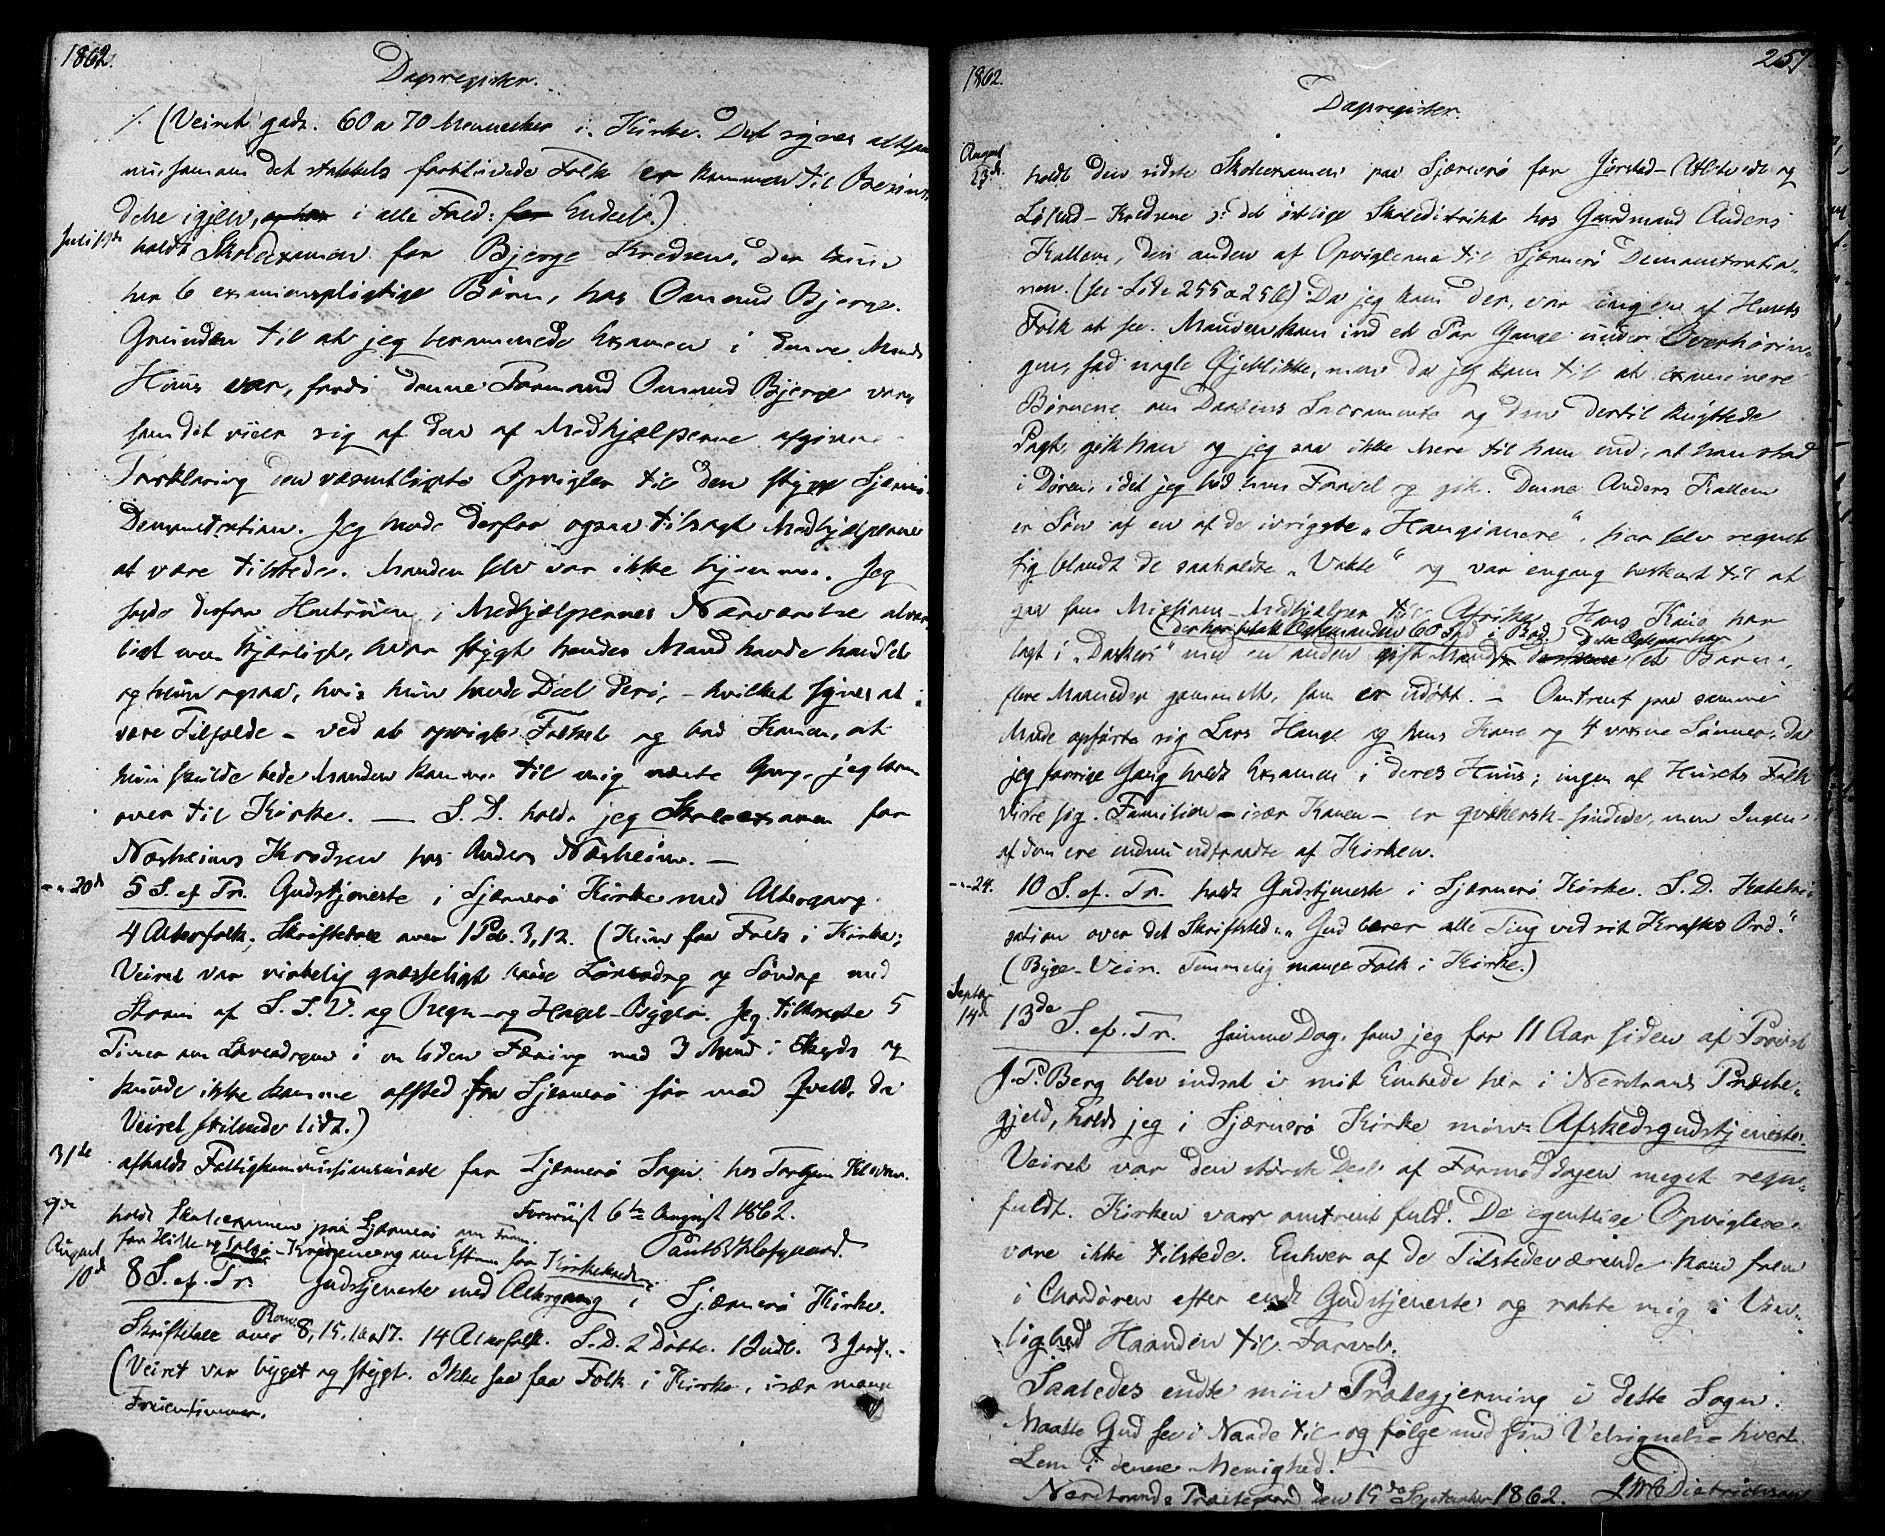 1862.
Dagsregister.
(Veiret godt. 60 a 70 Mennesker i Kirke. Det synes altsaa
som om det stakkels forblindede Folk er kommen til Besin-
delse igjen, i alle Fald: Endeel.)
Juli 19de
holdt Skoleexamen for Bjerge Kredsen, der kun
har 6 examenspligtige Børn, hos Omund Bjerge.
Grunden til at jeg berammede Examen i denne Mands
Huus var, fordi denne Formand Omund Bjerge var,
som det viser sig af den af Medhjælperne afgivne
Forklaring den væsentligste Opvigler til den stygge Sjærnerø
Demonstration. Jeg havde derfor ogsaa tilsagt Medhjælperne
at være tilstede. Manden selv var ikke hjemme. Jeg
sagde derfor Hustruen i Medhjælpernes Nærværelse alvor-
ligt men kjærligt, hvor stygt hendes Mand havde handlet
og hun ogsaa, hvis hun havde Deel deri, - hvilket synes at
være Tilfælde - ved at opvigle Folket og bad Konen, at
hun skulde bede Manden komme til mig næste Gang, jeg kom
over til Kirke. — S. D. holdt jeg Skoleexamen for
Næsheims Kredsen hos Anders Næsheim. —
- " - 20de
5 S. ef Tr. Gudstjeneste i Sjærnerø Kirke med Altergang
4 Alterfolk, Skriftetale over 1 Pet. 3, 12. (Kun faa Folk i Kirke;
Veiret var virkelig græsseligt baade Løverdag og Søndag med
Storm af S. S. V. og Regn- og Hagel-Byger. Jeg tilbragte 5
Timer om Løverdagen i en liden Færing med 3 Mand i Skyds og
kunde ikke komme afsted fra Sjærnerø før mod Qveld, da
Veiret stilnede lidt.)
31te
afholdt Fattigkommissionsmøde for Sjærnerø Sogn hos Torbjørn Kleven.
Forevist 6te August 1862.
9de
holdt Skoleexamen paa Sjærnerø om Form.
for Hille og Helgø-Kredsene og om Efterm. for Kirkekredsen
August
10de
8 S. ef. Tr. Gudstjeneste med Altergang i Sjærnerø Kirke.
Skriftetale over Rom. 8, 15, 16 a 17. 14 Alterfolk. S. D. 2 Døbte. 1 Indl. 3 Jordf.
(Veiret var byget og stygt. Ikke saa faa Folk i Kirke, især mange
Fruentimmer.
257.
1862.
Dagsregister.
August
23de
holdt den sidste Skoleexamen paa Sjærnerø for Jørstad-
Kredsene i det østlige Skoledistrikt hos Gaardmand Anders
Kallem, den anden af Opviglerne til Sjærnerø Demonstratio-
nen. (see Side 255 a 256) Da jeg kom der, var ingen af Husets
Folk at see. Manden kom ind et Par Gange under Overhørin-
gen, sad nogle Øjeblikke, men da jeg kom til at examinere
Børnene om Daabens Sacramente og den dertil knyttede
Pagt, gik han og jeg saa ikke mere til ham end, at han stod
i Døren, idet jeg bød ham Farvel og gik. Denne Anders Kallem
er Søn af en af de ivrigste „Haugianere", har selv regnet
sig blandt de saakaldte „Vakte" og var engang bestemt til at
gaa som Missions-Medhjælper til Afrika. Hans Kone har
(derfor betalte Ægtemanden 60 Spd i Bod.)
lagt i „Dølgsmaal" med en anden gift Mand et Barn,
flere Maaneder gammelt, som er udødt. — Omtrent paa samme
Maade opførte sig Lars Hauge og hans Kone og 4 voxne Sønner, da
jeg forrige Gang holdt Examen i deres Huus; ingen af Husets Folk
viste sig. Familien - især Konen - er qvækersk-sindede, men Ingen
af dem ere endnu udtraadte af Kirken.
- " - 24.
10 S. ef. Tr. holdt Gudstjeneste i Sjærnerø Kirke. S. D. Katechi-
sation over det Skriftsted: „Gud bærer alle Ting ved sit Krafts Ord."
(Byge-Veir. Temmelig mange Folk i Kirke.)
Septbr
14de
13de S. ef. Tr. samme Dag, som jeg for 11 Aar siden af Provst
J. P. Berg blev indsat i mit Embede her i Nerstrands Præste-
gjeld, holdt jeg i Sjærnerø Kirke min Afskedsgudstjeneste.
Veiret var den største Deel af Formiddagen meget regn-
fuldt. Kirken var omtrent fuld. De egentlige Opviglere
vare ikke tilstede. Enhver af de Tilstedeværende kom frem
i Chordøren efter endt Gudstjeneste og rakte mig i Ven-
lighed Haanden til Farvel.
Saaledes endte min Præstegjerning i dette Sogn.
Maatte Gud see i Naade til og følge med sin Velsignelse hvert
Lem i denne Menighed!
Nerstrands Præstegaard den 15de September 1862. J M C Dietrichson